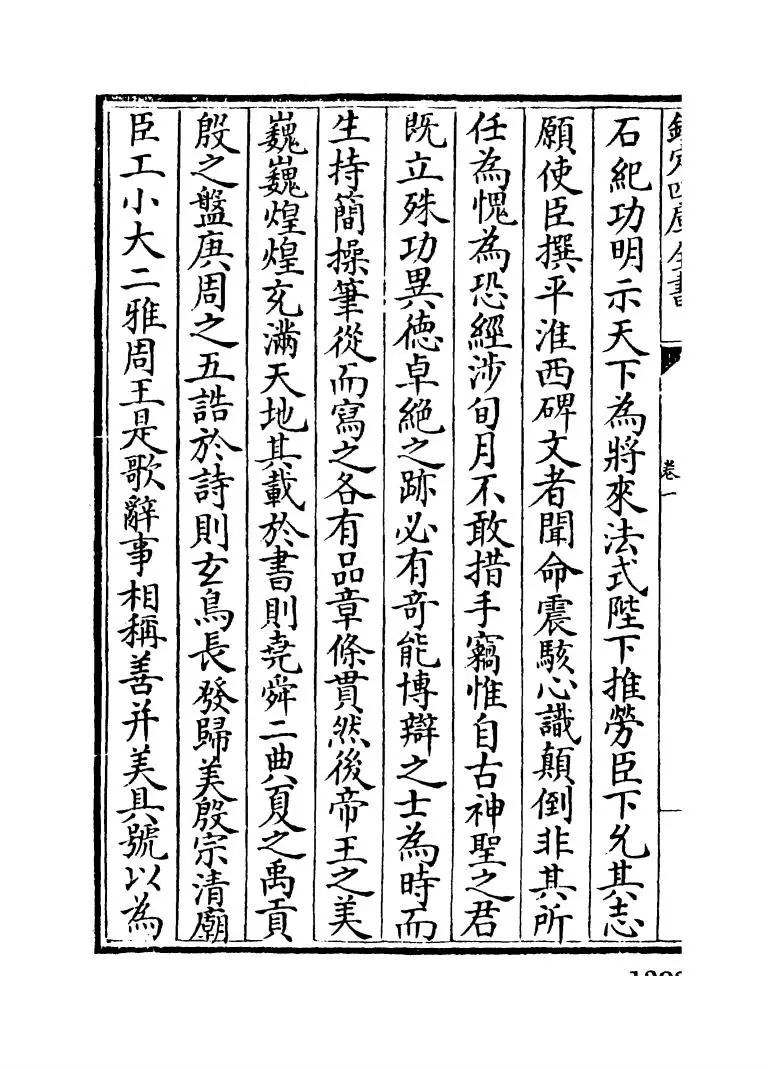 欽定四庫全書
卷一
石紀功明示天下為將來法式陛下推勞臣下允其志
願使臣撰平淮西碑文者聞命震駭心識顛倒非其所
任為愧為恐經涉旬月不敢措手竊惟自古神聖之君
既立殊功異徳卓絶之跡必有奇能博辯之士為時而
生持簡操筆從而寫之各有品章條貫然後帝王之美
巍巍煌煌充滿天地其載於書則堯舜二典夏之禹貢
殷之盤庚周之五誥於詩則玄鳥長發歸美殷宗清廟
臣工小大二雅周王是歌辭事相稱善并美具號以為